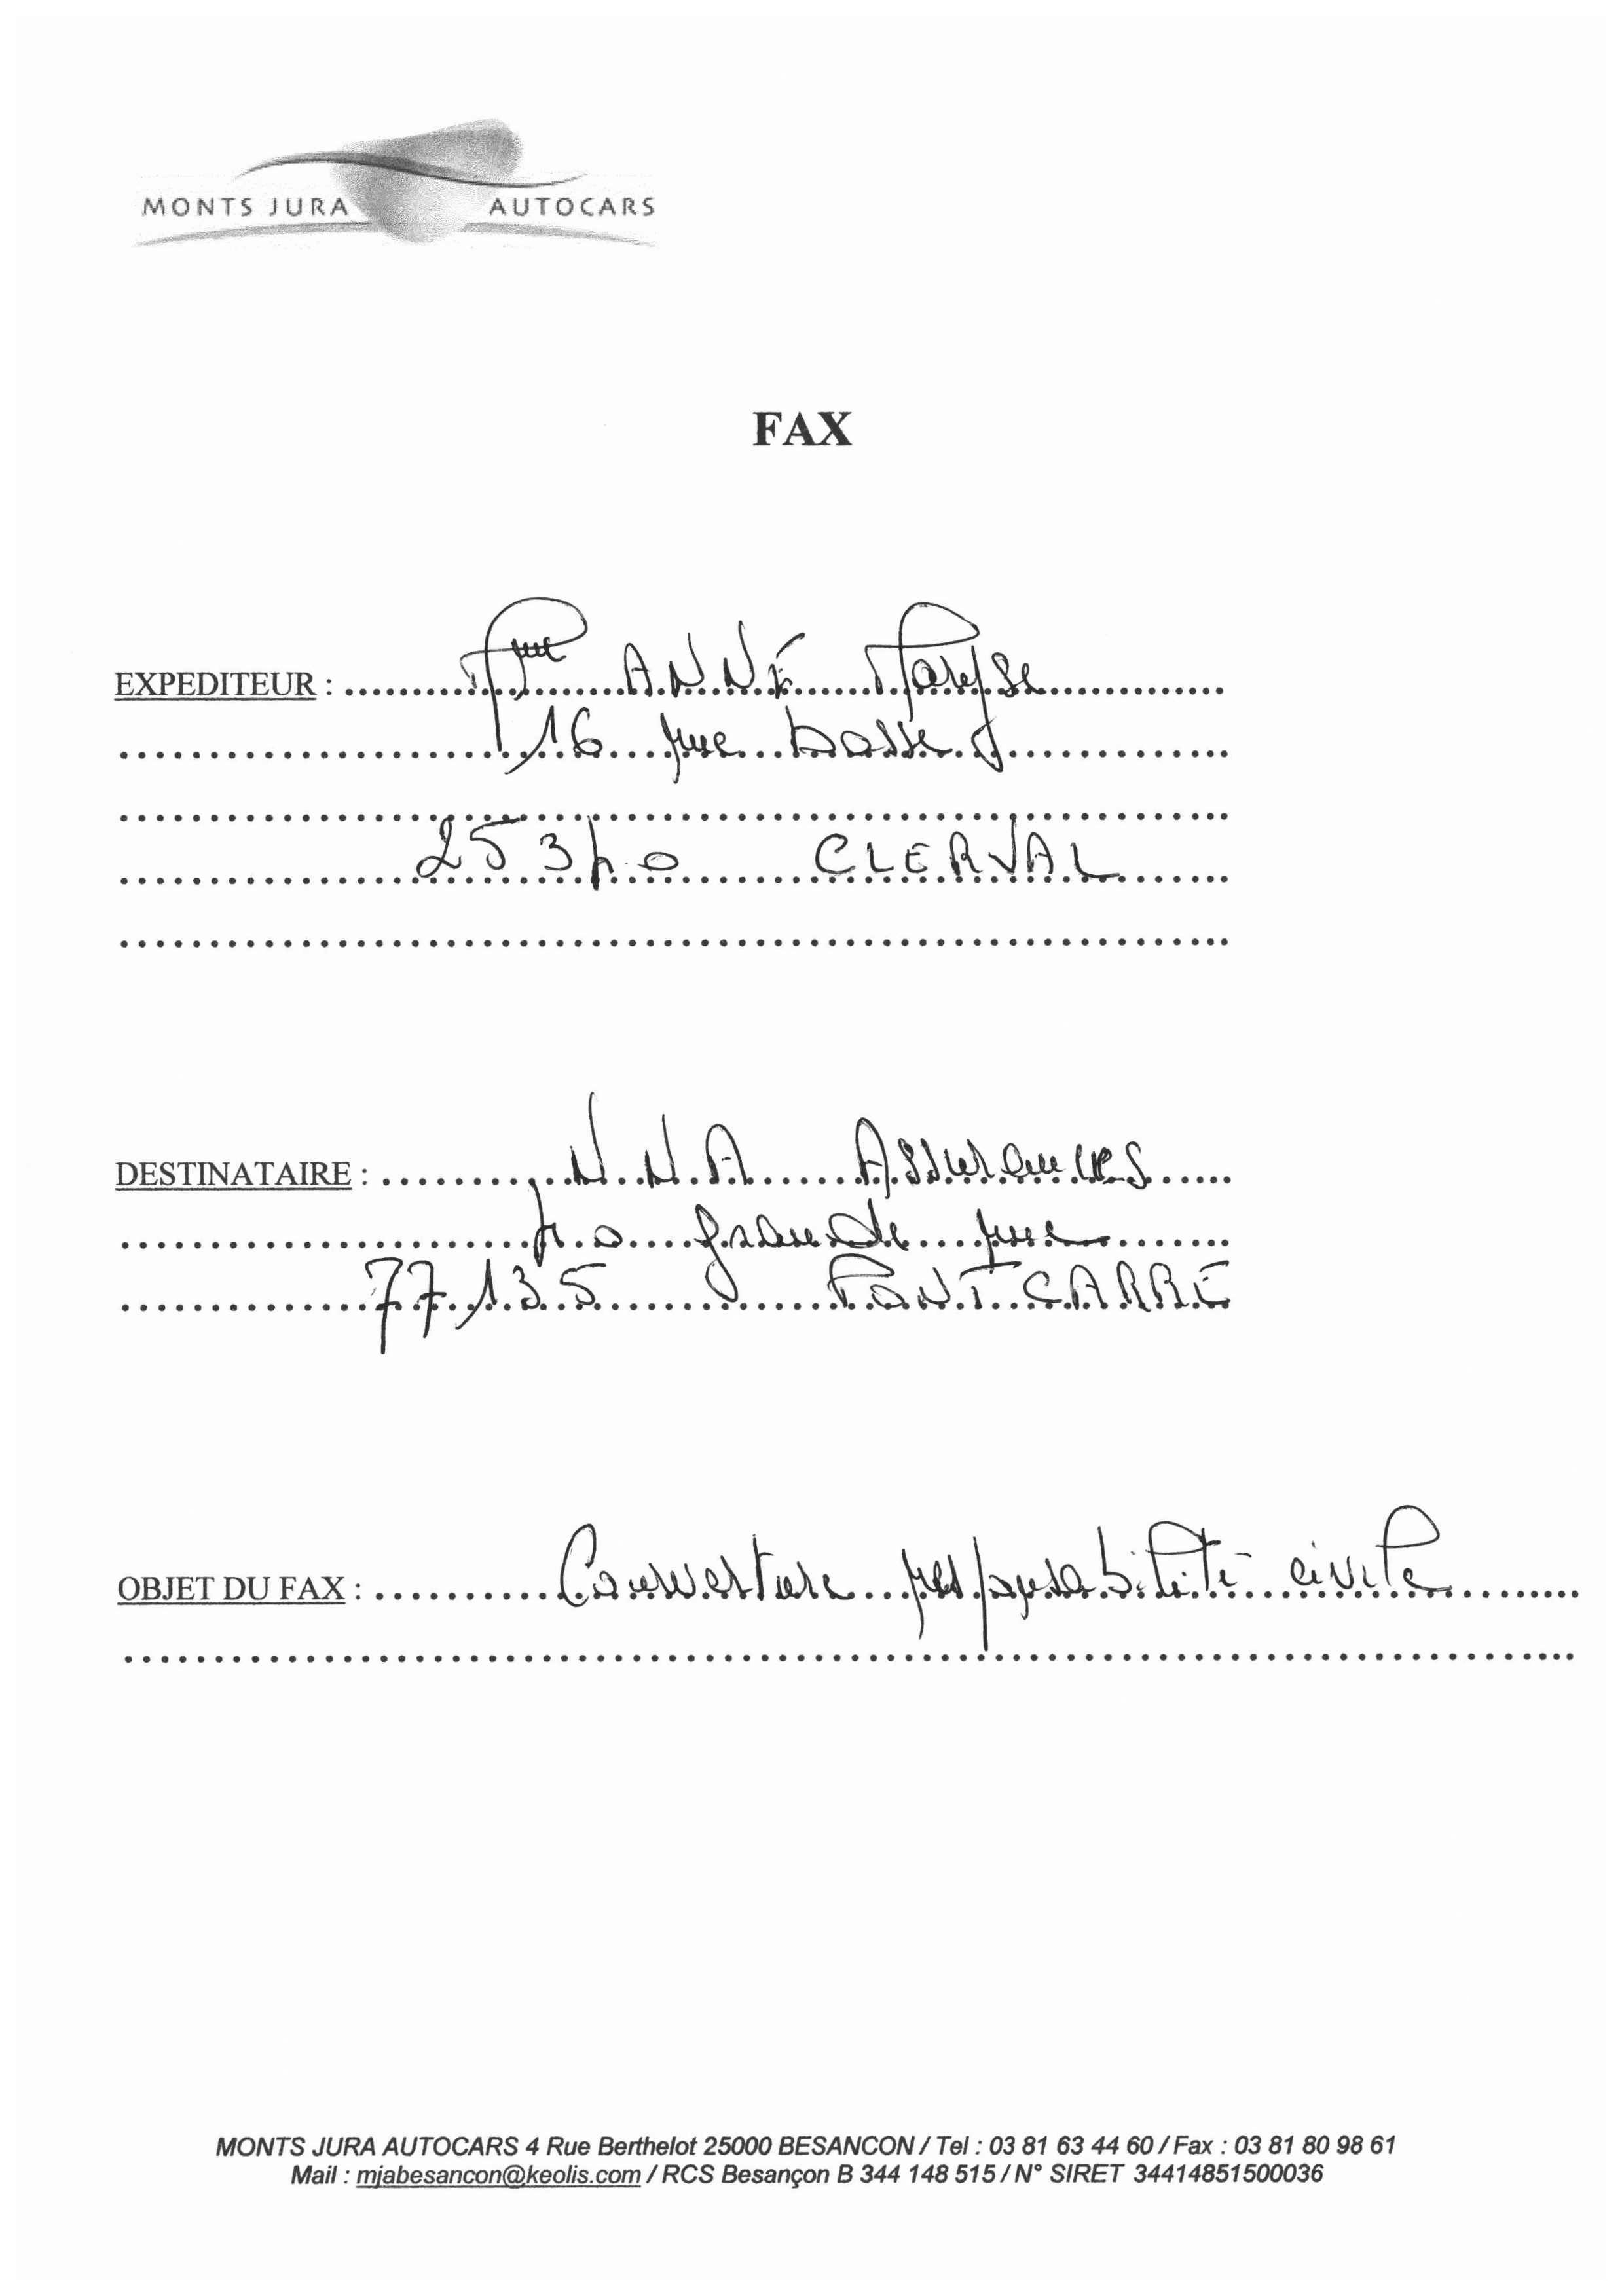 MONTS JURA AUTOCARS
FAX
EXPEDITEUR : Mme ANNÉ Maryse
16 rue basse
25340 CLERVAL
DESTINATAIRE : NNA Assurances
40 grande rue
77135 PONTCARRÉ
OBJET DU FAX : Couverture responsabilité civile
MONTS JURA AUTOCARS 4 Rue Berthelot 25000 BESANCON / Tel : 03 81 63 44 60 / Fax : 03 81 80 98 61
Mail : mjabesancon@keolis.com / RCS Besançon B 344 148 515 / N° SIRET 34414851500036